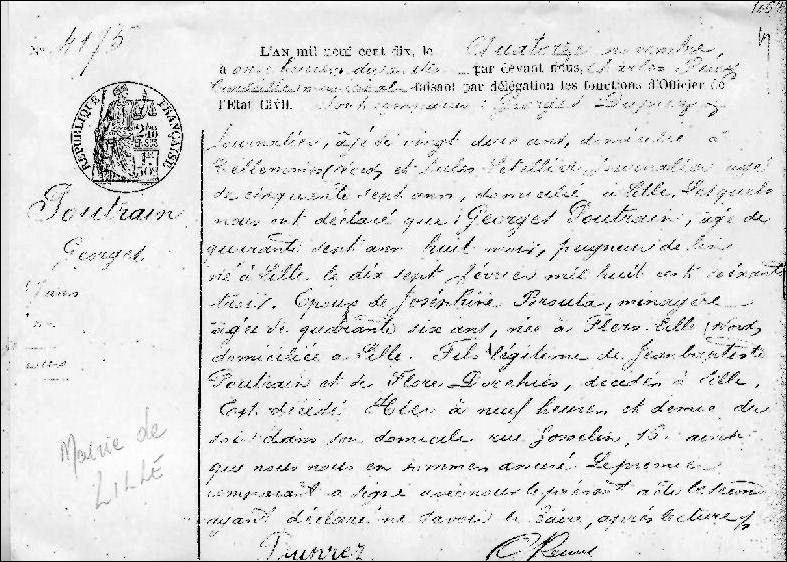 No 4175
L'AN mil neuf cent dix, le Quatorze novembre,
à onze heures du matin par devant nous,
faisant par délégation les fonctions d'Officier de
l'Etat Civil. sont comparus : Georges
RÉPUBLIQUE FRANÇAISE
Journalier, âgé de vingt deux ans, domicilié à
et Jules Journalier âgé
de cinquante sept ans, domicilié à Lille, Lesquels
Poutrain
nous ont déclaré que : Georges Poutrain, âgé de
Georges
quarante sept ans huit mois, peigneur de lin
né à Lille le dix sept février mil huit cent soixante
trois. Epoux de Joséphine ménagère
âgée de quarante six ans, née à Flers-Lille (Nord)
domiciliée à Lille. Fils légitime de Jean baptiste
Poutrain et de Flore décédés à Lille,
Est décédé Hier à neuf heures et demie du
soir dans son domicile rue Josselin, 16. ainsi
Mairie de
LILLE
que nous nous en sommes assuré. Le premier
comparant a signé avec nous le présent acte le second
ayant déclaré ne savoir le faire, après lecture